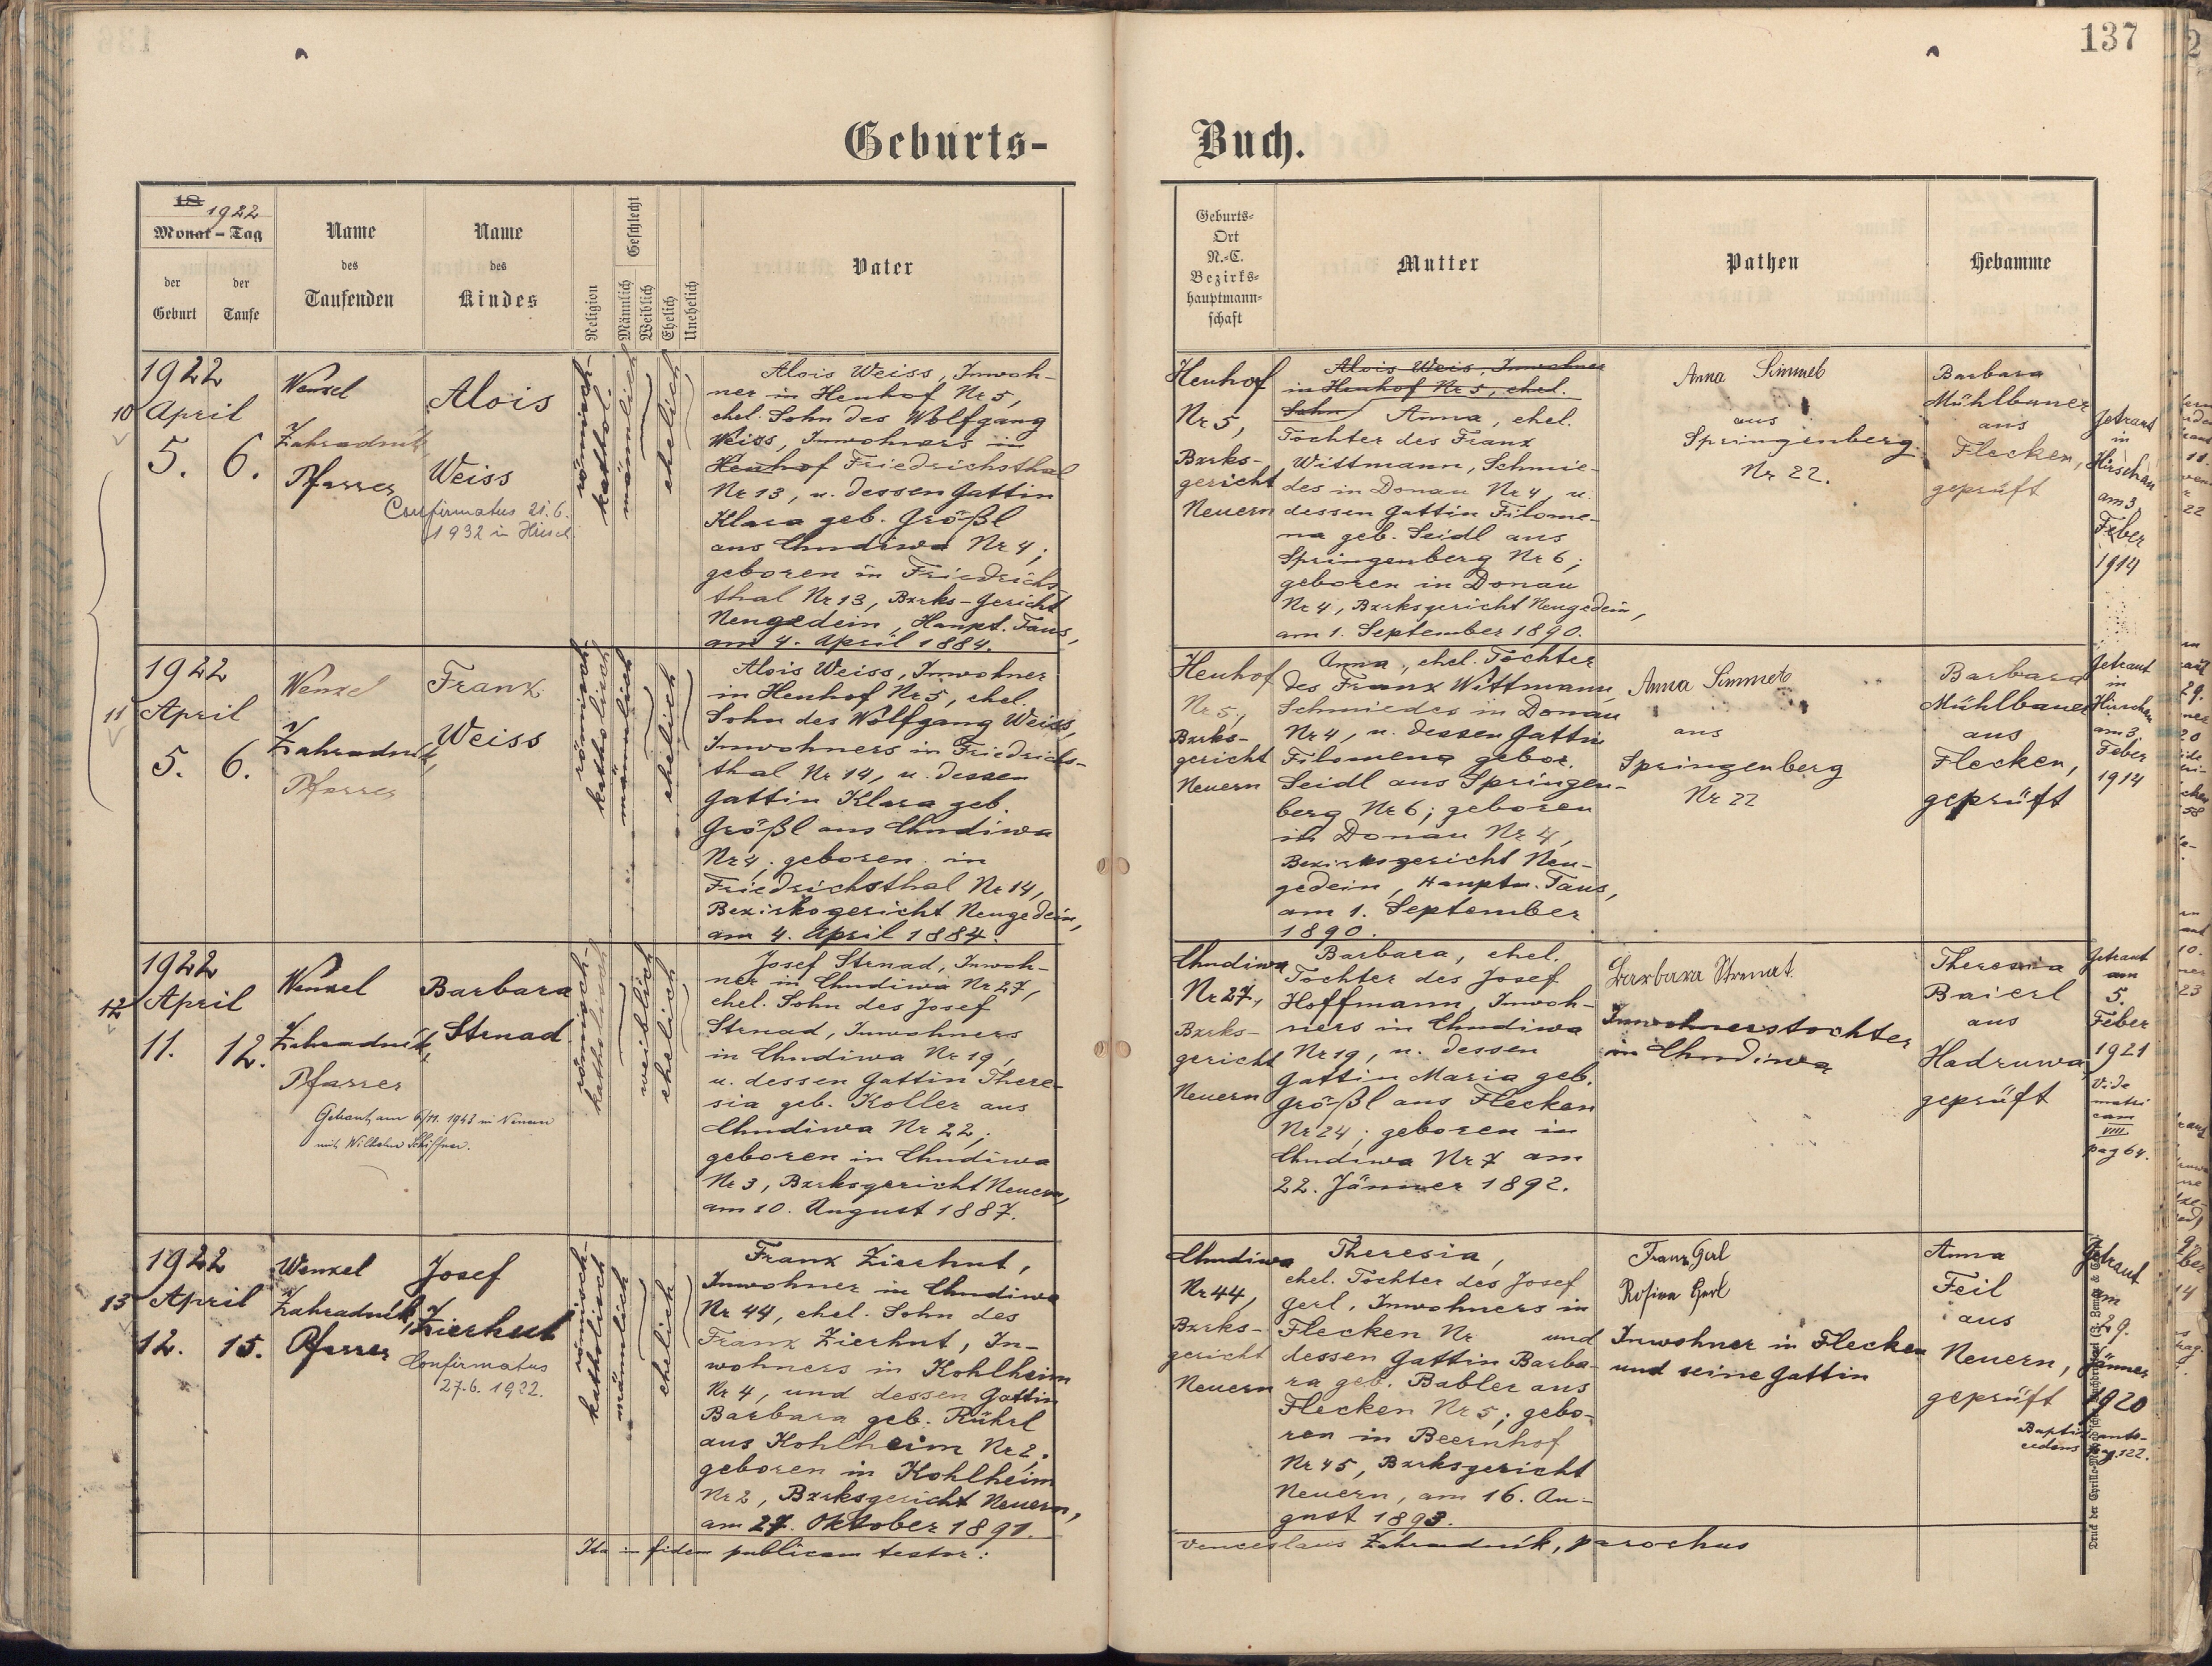 137
Geburts-
Buch.
18 1922
Monat - Tag
der Geburt
der Taufe
Name des Taufenden
Name des Kindes
Religion
Geschlecht
Männlich
Weiblich
Ehelich
Unehelich
Vater
Geburts-
Ort
N.-C.
Bezirks-
hauptmann-
schaft
Mutter
Pathen
Hebamme
10
1922
April
5. 6.
Wenzel
Zahradník,
Pfarrer
Alois
Weiss
Confirmatus 21.6.
1932 in
römisch-
kathol.
männlich
ehelich
Alois Weiss, Inwoh-
ner in Heuhof Nr 5,
ehel. Sohn des Wolfgang
Weiss, Inwohners in
Heuhof Friedrichsthal
Nr 13, u. dessen Gattin
Klara geb. Größl
aus Chudiwa Nr 4;
geboren in Friedrichs-
thal Nr 13, Bzrks-Gericht
Neugedein, Haupt. Taus,
am 4. April 1884.
Heuhof
Nr 5,
Bzrks-
gericht
Neuern
Alois Weis, Inwohner
in Heuhof Nr 5, ehel.
Sohn Anna, ehel.
Tochter des Franz
Wittmann, Schmie-
des in Donau Nr 4, u.
dessen Gattin Filome-
na geb. Seidl aus
Springenberg Nr 6;
geboren in Donau
Nr 4, Bzrksgericht Neugedein,
am 1. September 1890.
Anna Simmet
aus
Springenberg
Nr 22.
Barbara
Mühlbauer
aus
Flecken,
geprüft
Getraut
in
Hirschau
am 3.
Feber
1914
11
1922
April
5. 6.
Wenzel
Zahradník,
Pfarrer
Franz
Weiss
römisch-
katholisch
männlich
ehelich
Alois Weiss, Inwohner
in Heuhof Nr 5, ehel.
Sohn des Wolfgang Weiss,
Inwohners in Friedrichs-
thal Nr 14, u. dessen
Gattin Klara geb.
Größl aus Chudiwa
Nr 4; geboren in
Friedrichsthal Nr 14,
Bezirksgericht Neugedein,
am 4. April 1884.
Heuhof
Nr 5,
Bzrks-
gericht
Neuern
Anna, ehel. Tochter
des Franz Wittmann,
Schmiedes in Donau
Nr 4, u. dessen Gattin
Filomena gebor.
Seidl aus Springen-
berg Nr 6; geboren
in Donau Nr 4,
Bezirksgericht Neu-
gedein, Hauptm. Taus,
am 1. September
1890.
Anna Simmet
aus
Springenberg
Nr 22
Barbara
Mühlbauer
aus
Flecken,
geprüft
Getraut
in
Hirschau
am 3.
Feber
1914
12
1922
April
11. 12.
Wenzel
Zahradník,
Pfarrer
Getraut am 6/11. 1943 in Neuern
mit Wilhelm Schiffner.
Barbara
Strnad
römisch-
katholisch
weiblich
ehelich
Josef Strnad, Inwoh-
ner in Chudiwa Nr 27,
ehel. Sohn des Josef
Strnad, Inwohners
in Chudiwa Nr 19,
u. dessen Gattin There-
sia geb. Koller aus
Chudiwa Nr 22;
geboren in Chudiwa
Nr 3, Bzrksgericht Neuern,
am 10. August 1887.
Chudiwa
Nr 27,
Bzrks-
gericht
Neuern
Barbara, ehel.
Tochter des Josef
Hoffmann, Inwoh-
ners in Chudiwa
Nr 19, u. dessen
Gattin Maria geb.
Größl aus Flecken
Nr 24; geboren in
Chudiwa Nr 7 am
22. Jänner 1892.
Barbara Strnat
Inwohnerstochter
in Chudiwa
Theresia
Baierl
aus
Hadruwa,
geprüft
Getraut
am
5.
Feber
1921
Vide
matri
cam
VIII
pag 64.
13
1922
April
12. 15.
Wenzel
Zahradník,
Pfarrer
Josef
Zierhut
Confirmatus
27.6. 1932.
römisch-
katholisch
männlich
ehelich
Franz Zierhut,
Inwohner in Chudiwa
Nr 44, ehel. Sohn des
Franz Zierhut, In-
wohners in Kohlheim
Nr 4, und dessen Gattin
Barbara geb. Rührl
aus Kohlheim Nr 2;
geboren in Kohlheim
Nr 2, Bzrksgericht Neuern,
am 27. Oktober 1891.
Chudiwa
Nr 44,
Bzrks-
gericht
Neuern
Theresia,
ehel. Tochter des Josef
Gerl, Inwohners in
Flecken Nr und
dessen Gattin Barba-
ra geb. Babler aus
Flecken Nr 5; gebo-
ren in Beernhof
Nr 45, Bzrksgericht
Neuern, am 16. Au-
gust 1893.
Franz Gerl
Rosina Gerl
Inwohner in Flecken
und seine Gattin
Anna
Feil
aus
Neuern,
geprüft
Getraut
am
29.
Jänner
1920
pag. 122.
Ita in fidem publicam testor:
Venceslaus Zahradník, parochus